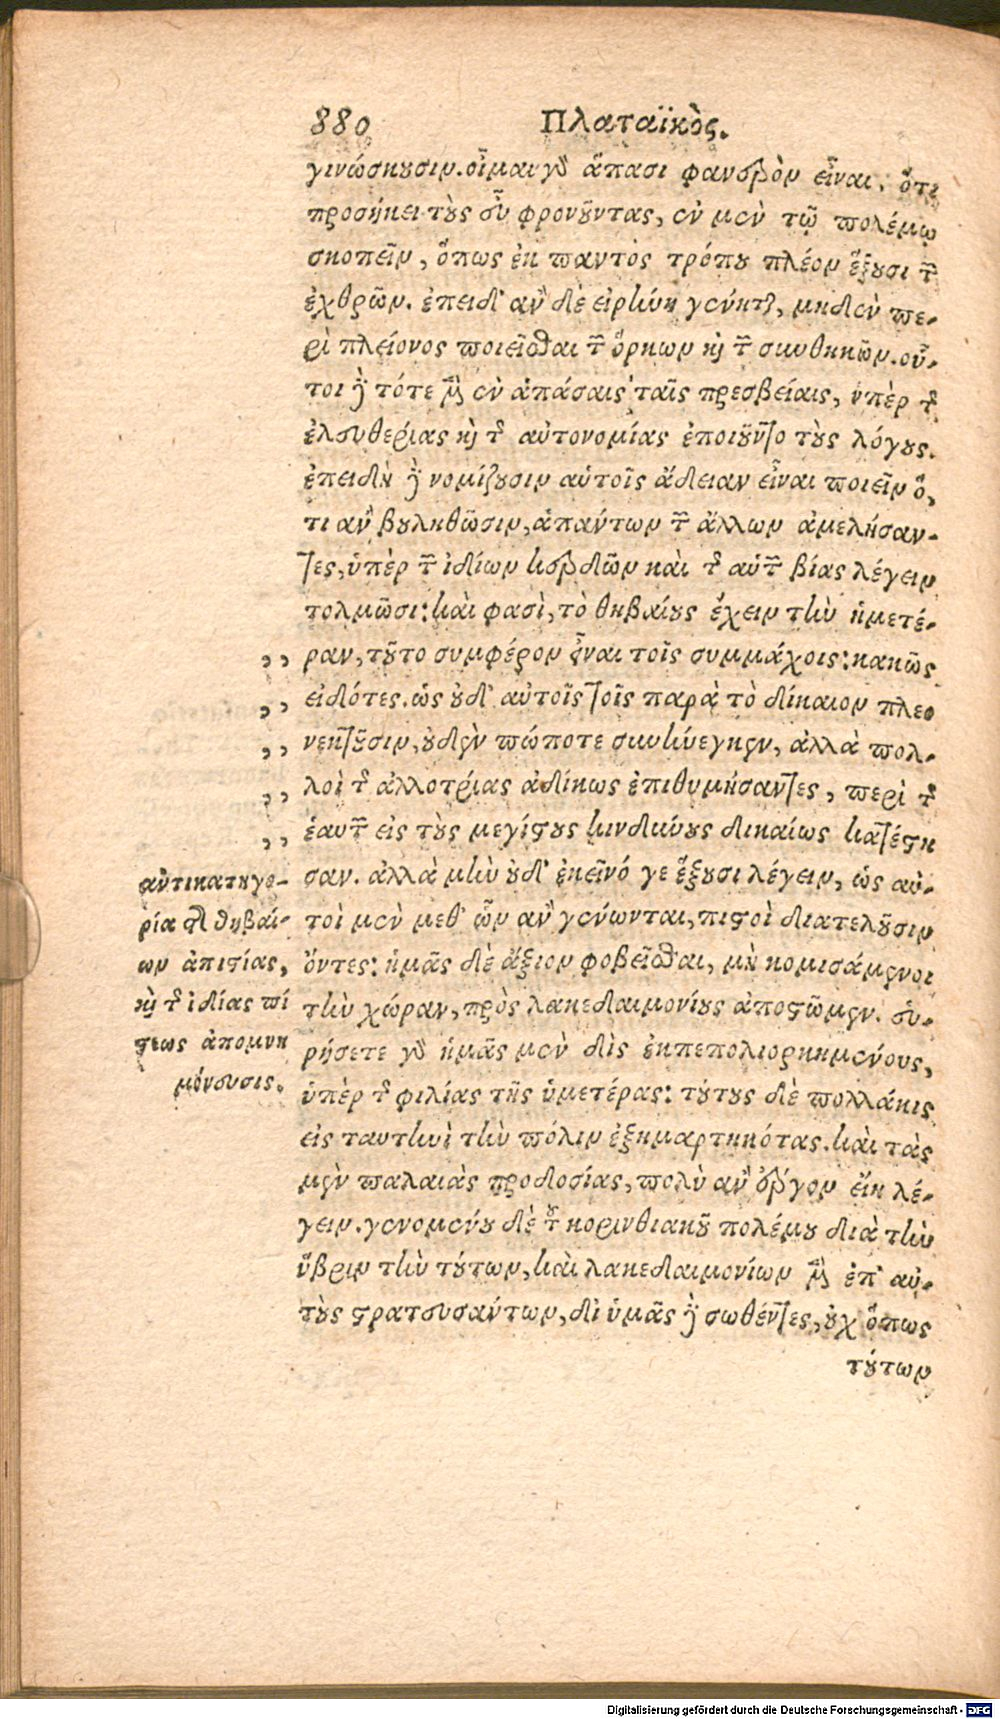 880 Πλαταϊκὸς.
γινώσκουσιν. οἶμαι γὸ ἅπασι φανερὸν εἶναι, ὅτι
προσήκει τοὺς εὖ φρονοῦντας, ἐν μὲν τῷ πολέμω
σκοπεῖν, ὅπως ἐκ παντὸς τρόπου πλέον ἕξουσι τῶν
ἐχθρῶν. ἐπειδ' ἂν δὲ εἰρήνη γένηται, μηδὲν πε-
ρὶ πλείονος ποιεῖσθαι τῶν ὅρκων καὶ τῶν συνθηκῶν. οὗ-
τοι δὲ τότε μὲν ἐν ἁπάσαις ταῖς πρεσβείαις, ὑπὲρ τῆς
ἐλευθερίας καὶ τῆς αὐτονομίας ἐποιοῦντο τοὺς λόγους.
ἐπειδὴ δὲ νομίζουσιν αὑτοῖς ἄδειαν εἶναι ποιεῖν ὅ,
τι ἂν βουληθῶσιν, ἁπάντων τῶν ἄλλων ἀμελήσαν-
τες, ὑπὲρ τῶν ἰδίων κερδῶν καὶ τῆς αὑτῶν βίας λέγειν
τολμῶσι: καὶ φασὶ, τὸ θηβαίους ἔχειν τὴν ἡμετέ-
,, ραν, τοῦτο συμφέρον εἶναι τοῖς συμμάχοις: κακῶς
,, εἰδότες. ὡς οὐδ' αὐτοῖς τοῖς παρὰ τὸ δίκαιον πλεο
,, νεκτοῦσιν, οὐδὲν πώποτε συνήνεγκεν, ἀλλὰ πολ-
,, λοὶ τῆς ἀλλοτρίας ἀδίκως ἐπιθυμήσαντες, περὶ τῆς
,, ἑαυτῶν εἰς τοὺς μεγίστους κινδύνους δικαίως κατέστη
σαν. ἀλλὰ μὴν οὐδ' ἐκεῖνό γε ἕξουσι λέγειν, ὡς αὐ-
τοὶ μὲν μεθ' ὧν ἂν γένωνται, πιστοὶ διατελοῦσιν
ὄντες: ἡμᾶς δὲ ἄξιον φοβεῖσθαι, μὴ κομισάμενοι
τὴν χώραν, πρὸς λακεδαιμονίους ἀποστῶμεν. εὑ-
ρήσετε γὸ ἡμᾶς μὲν δὶς ἐκπεπολιορκημένους,
ὑπὲρ τῆς φιλίας τῆς ὑμετέρας: τούτους δὲ πολλάκις
εἰς ταυτηνὶ τὴν πόλιν ἐξημαρτηκότας. καὶ τὰς
μὲν παλαιὰς προδοσίας, πολὺ ἂν ἔργον εἴη λέ-
γειν. γενομένου δὲ τοῦ κορινθιακοῦ πολέμου διὰ τὴν
ὕβριν τὴν τούτων, καὶ λακεδαιμονίων μὲν ἐπ' αὐ-
τοὺς στρατευσάντων, δι' ὑμᾶς δὲ σωθέντες, οὐχ ὅπως
τούτων
ἀντικατηγο-
ρία τῶν θηβαί-
ων ἀπιστίας,
καὶ τῆς ἰδίας πί
στεως ἀπομνη
μόνευσις.
Digitalisierung gefördert durch die Deutsche Forschungsgemeinschaft - DFG